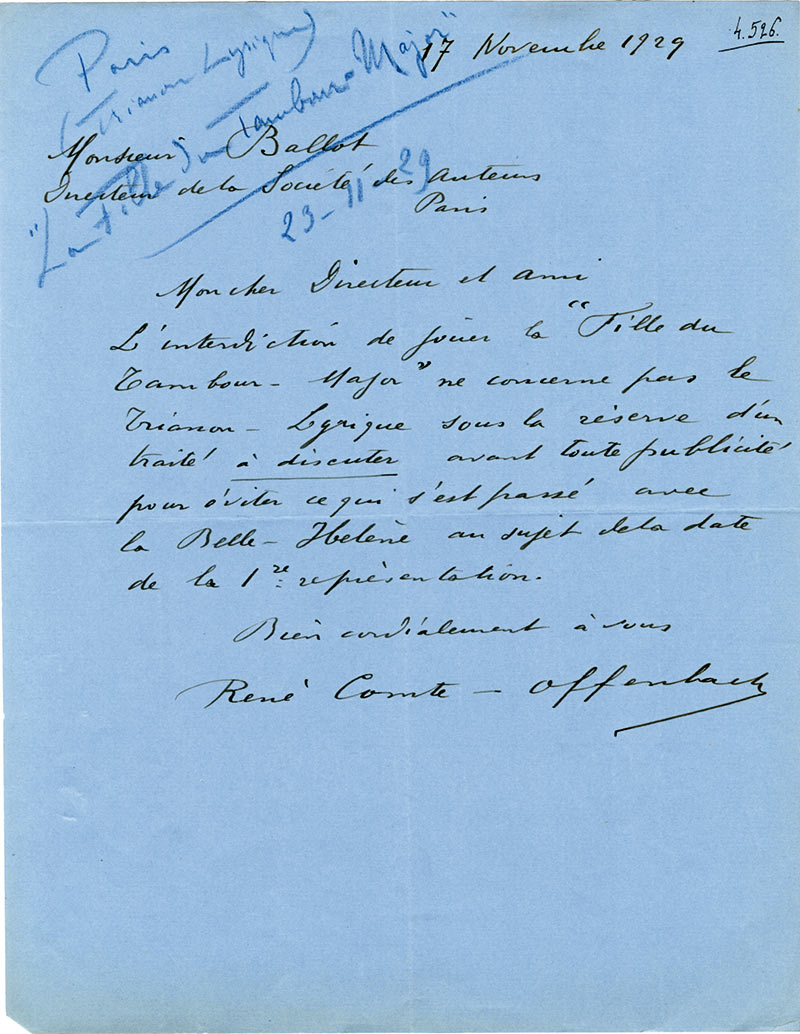 4.526.
17 Novembre 1929
Paris
(Trianon Lyrique)
"La Fille du Tambour-Major"
23-11-29
Monsieur Ballot
Directeur de la Société des Auteurs
Paris
Mon cher Directeur et ami
L'interdiction de jouer la "Fille du
Tambour-Major" ne concerne pas le
Trianon-Lyrique sous la réserve d'un
traité à discuter avant toute publicité
pour éviter ce qui s'est passé avec
la Belle-Helène au sujet de la date
de la 1re représentation.
Bien cordialement à vous
René Comte-Offenbach